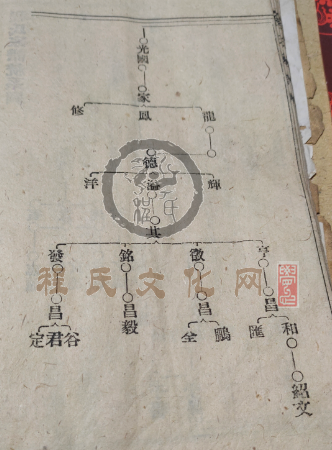 光國
家
龍 鳳 修
德
輝 瀛 洋
其
亨 徵 銘 發
昌 昌 昌毅 昌
和 匯 鵬 全 谷 君 定
紹文
程氏文化网